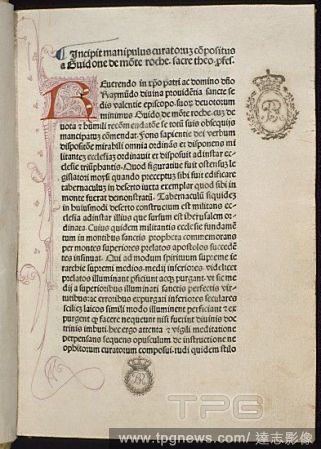 Incipit manipulus curatorum cōpositus
a Guidone de mōte roche. sacre theo. pfes.
Euerendo in xpō patri ac domino dño
Raymūdo diuina prouidētia sancte se
dis valentie episcopo. suorū deuotorum
minimus Guido de mōte roche. cuz de
uota et humili recōmendatiōe se totū suis obsequijs
mancipatuz cōmendat. Fons sapientie dei verbum
dispositiōe mirabili omnia ordinās et disponens mi
litantez ecclesiaz ordinauit et disposuit ad instar ec
clesie triūphantis. Quod figuratiue fuit ostensuz le
gislatori moysi quando preceptuz sibi fuit edificare
tabernaculuz in deserto iuxta exemplar quod sibi in
monte fuerat demonstratū. Tabernaculū siquidez
in huiusmodi deserto constructum est militans ec
clesia ad instar illius que sursum est iherusalem or
dinata. Cuius quidem militantis ecclesie fundamen
tum in montibus sanctis propheta commemorans
per montes superiores prelatos apostolis succedē
tes insinuat. Qui ad modum spirituum supreme ie
rarchie supremi medios. medij inferiores. videlicet
prelatos illuminant pficiunt acq; purgant. vt sic me
dij a superioribus illuminati sanctis perfectis vir
tutibus: ac erroribus expurgati inferiores seculares
scilicz laicos simili modo illuminent perficiant et ex
purgent qd facere nequeunt nisi fuerint diuinis doc
trinis imbuti. hec ergo attenta et vigili meditatione
perpensans sequens opusculum de instructione ne
ophitorum curatorum composui. rudi quidem stilo
TPG
www.tpgnews.com / 達志影像